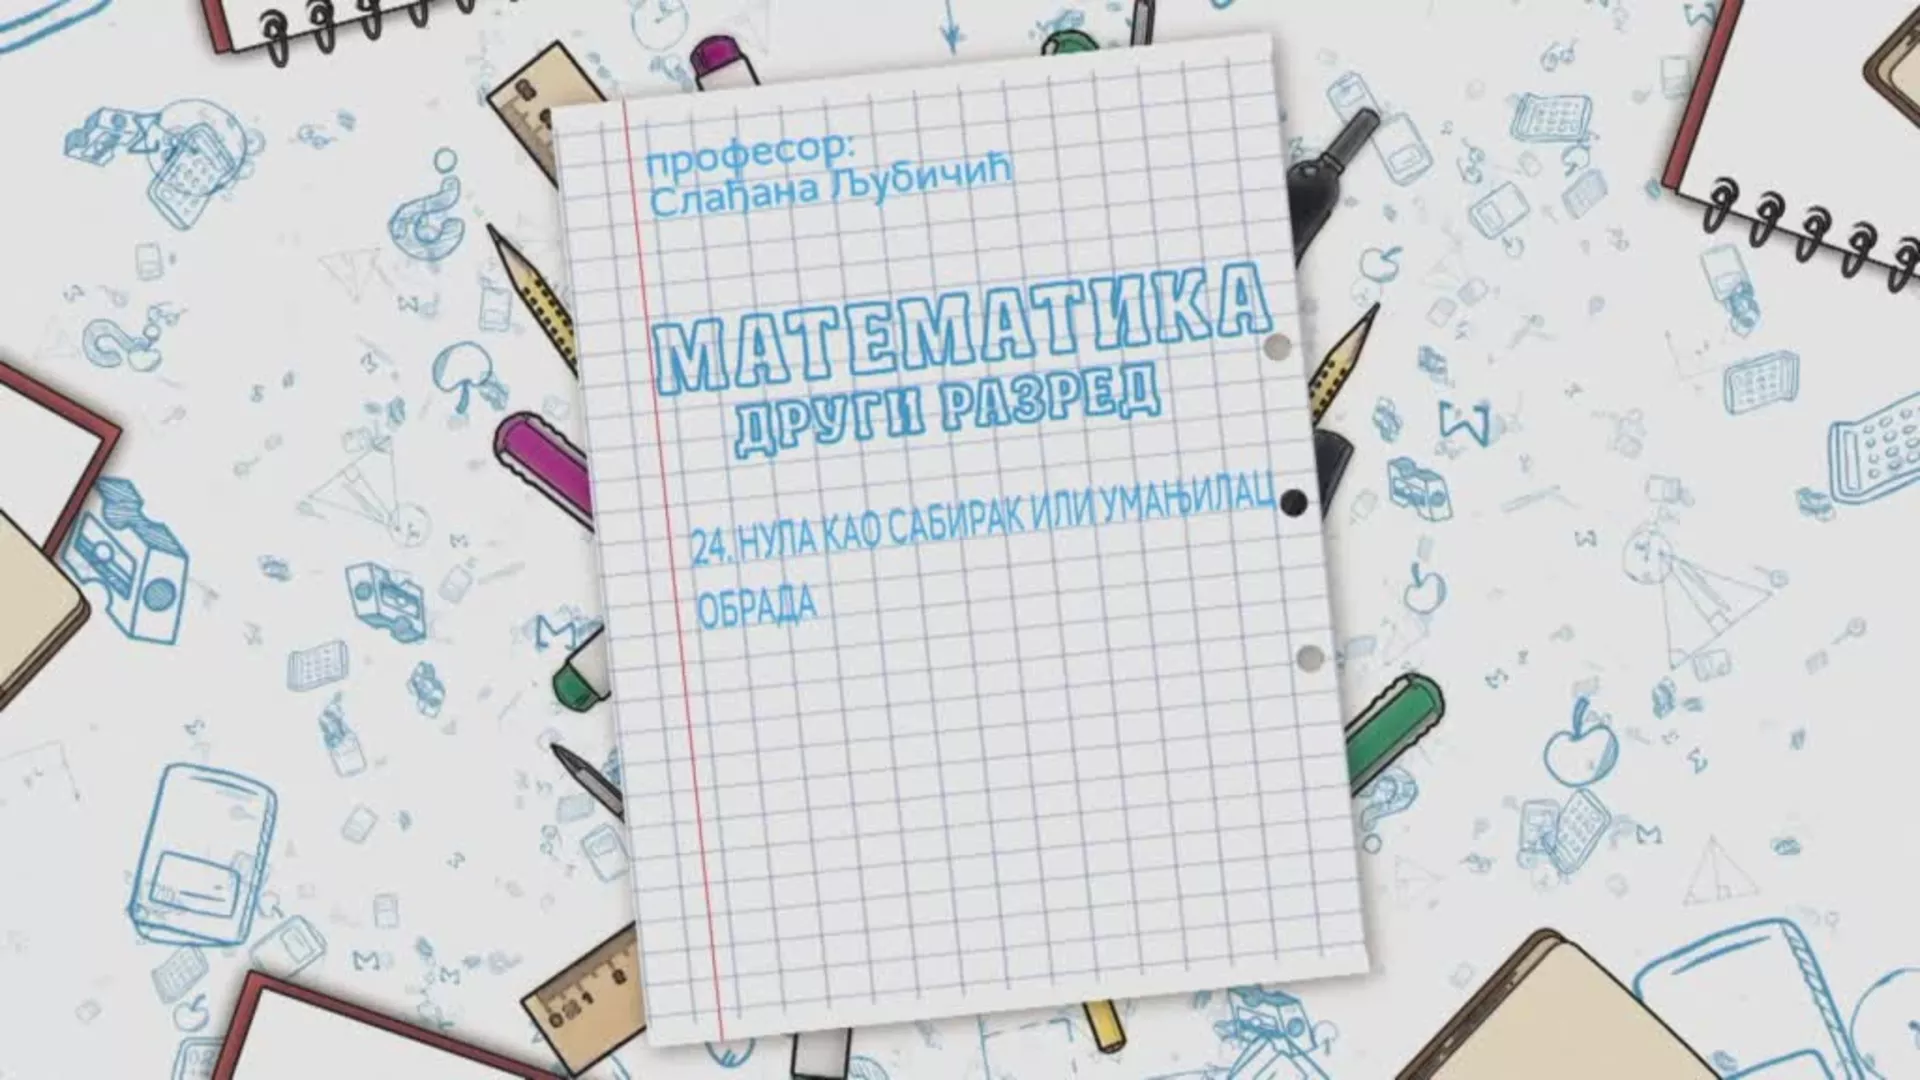 професор:
Слађана Љубичић
МАТЕМАТИКА
ДРУГИ РАЗРЕД
24. НУЛА КАО САБИРАК ИЛИ УМАЊИЛАЦ
ОБРАДА